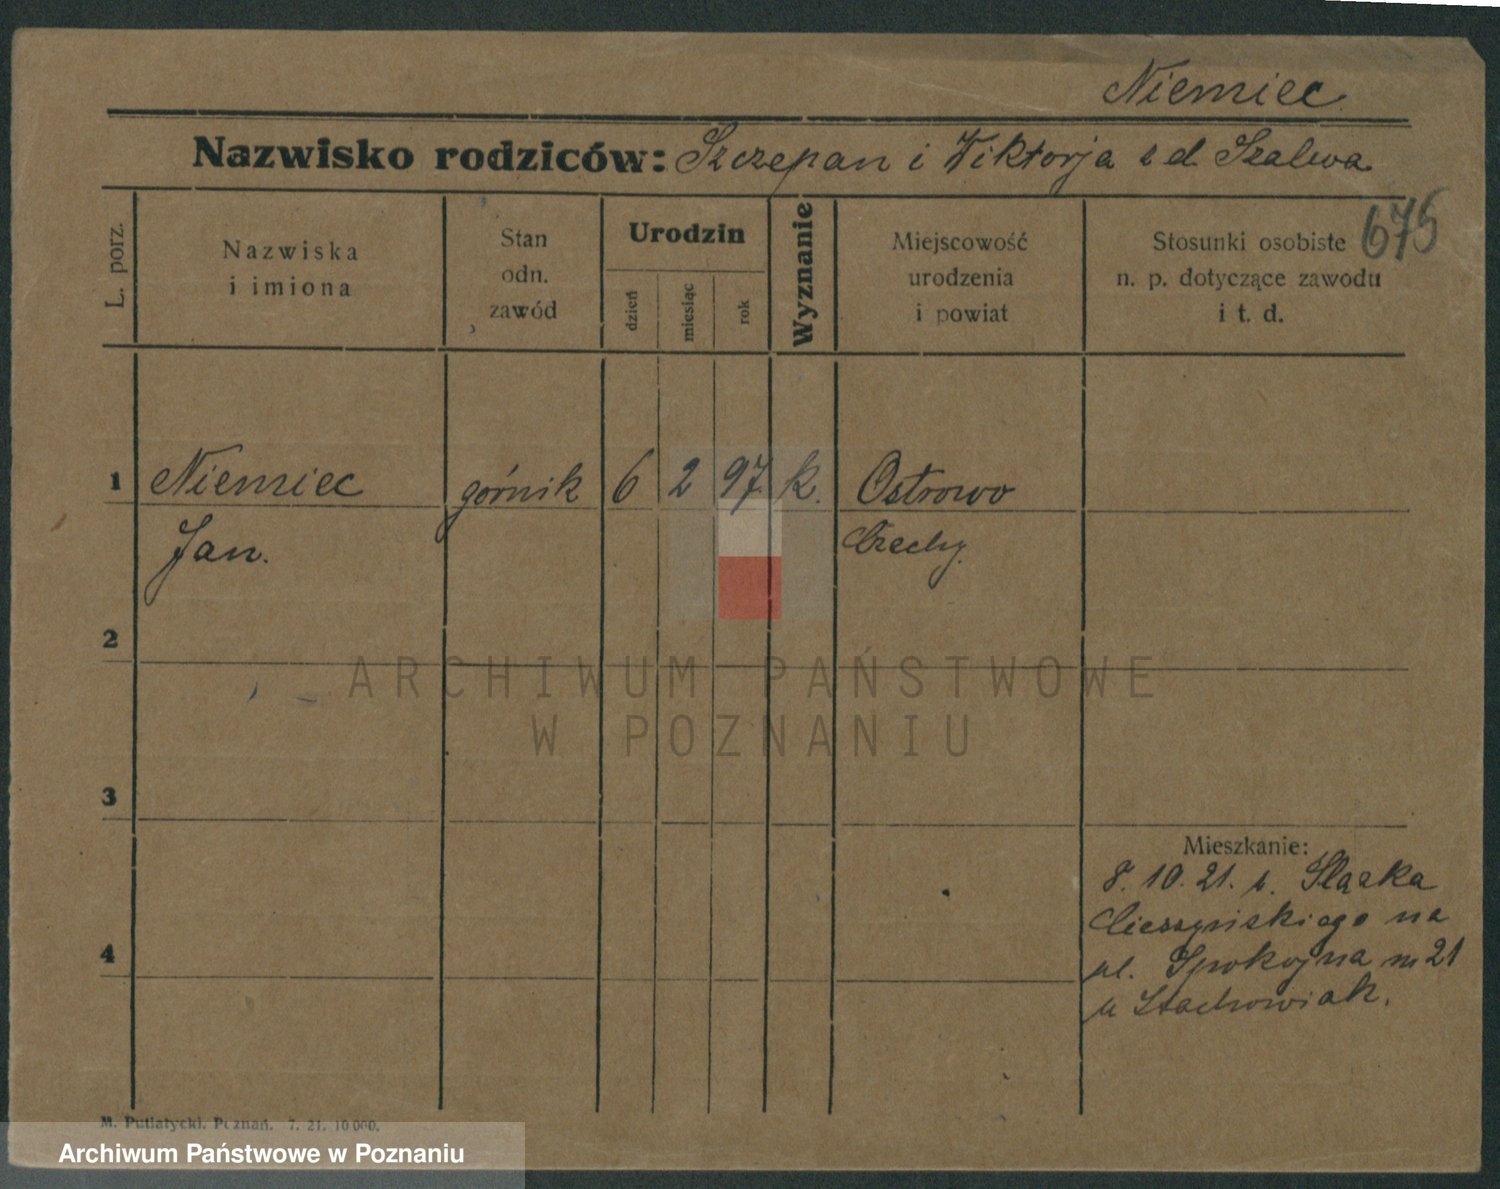 Niemiec
Nazwisko rodziców: Szczepan i Wiktorja z d. Szalwa
675
L. porz.
Nazwiska
i imiona
Stan
odn.
zawód
Urodzin
dzień
miesiąc
rok
Wyznanie
Miejscowość
urodzenia
i powiat
Stosunki osobiste
n. p. dotyczące zawodu
i t. d.
1 Niemiec górnik 6 2 97 k. Ostrowo
Jan. Czechy.
2
3
4
Mieszkanie:
8. 10. 21. z. Śląska
Cieszyńskiego na
ul. Spokojna 21
u Stachowiak.
M. Putiatycki. Poznań. 7. 21. 10 000.
ARCHIWUM PAŃSTWOWE
W POZNANIU
Archiwum Państwowe w Poznaniu